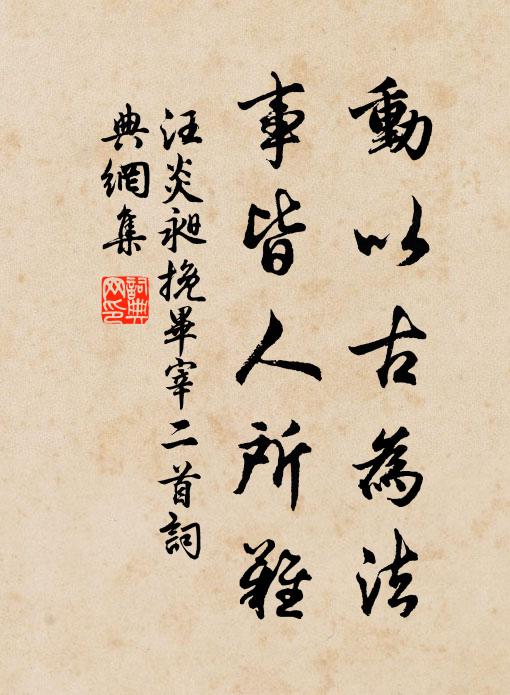 動以古為法
事皆人所難
汪炎昶挽畢宰二首詞
典網集
詞典
网印